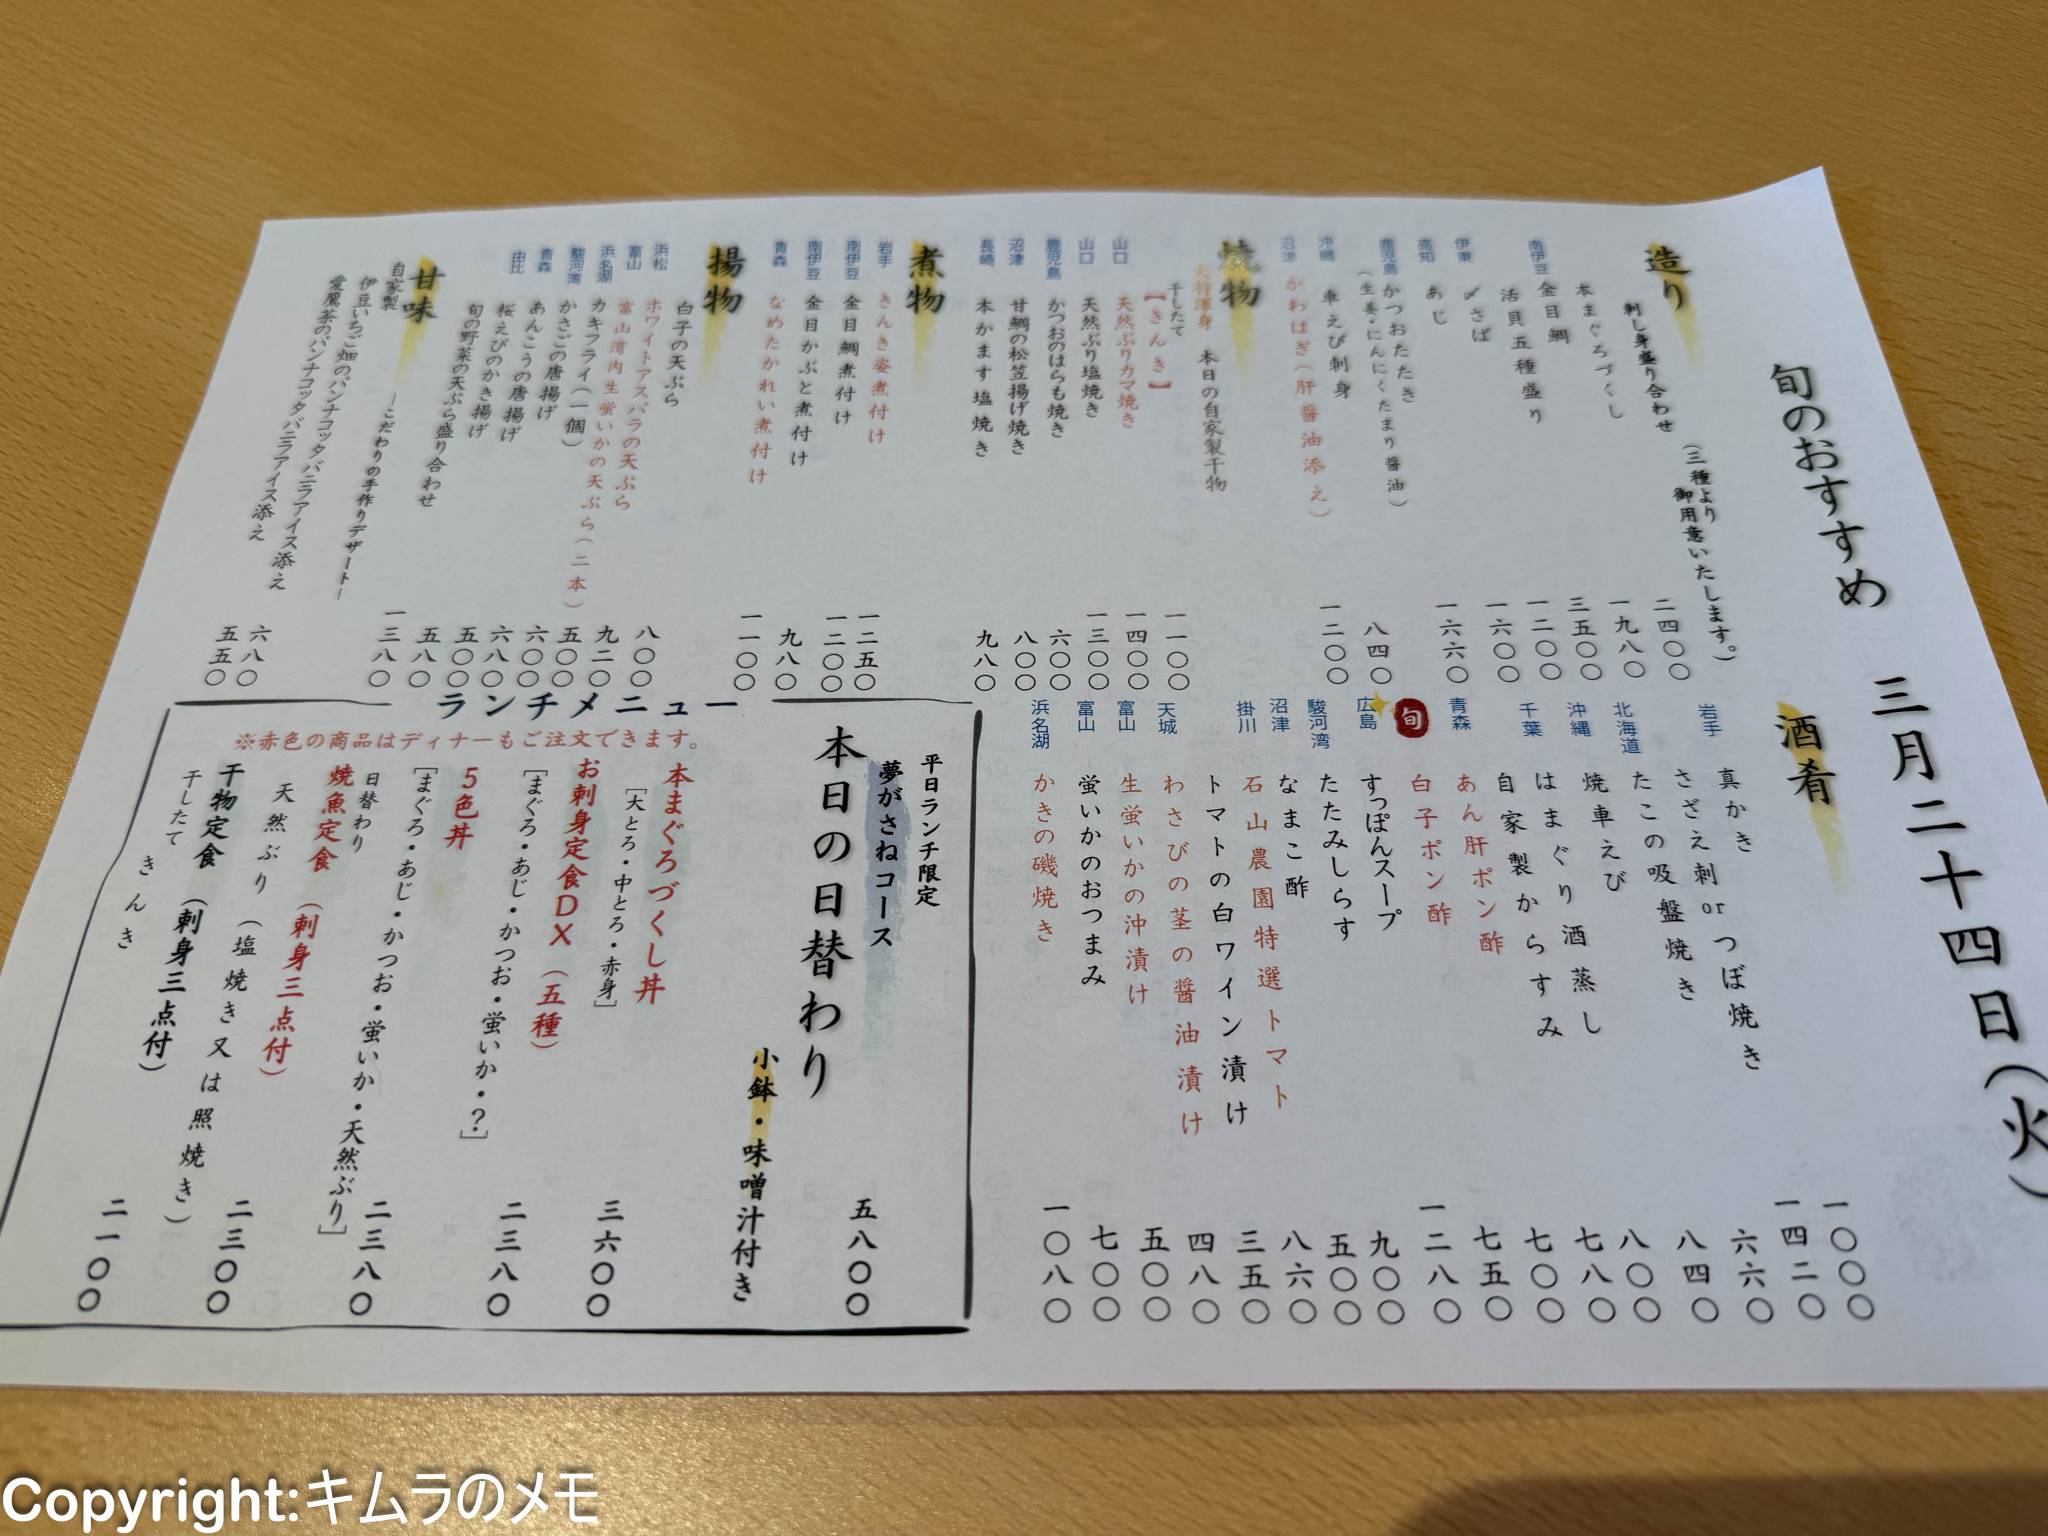 旬のおすすめ 三月二十四日(火)
造り
刺し身盛り合わせ (三種より御用意いたします。) 二四〇〇
本まぐろづくし 一九八〇
南伊豆 金目鯛 三五〇〇
活貝五種盛り 一二〇〇
伊東 〆さば 一六〇〇
高知 あじ 一六六〇
鹿児島 かつおたたき
(生姜・にんにくたまり醤油)
沖縄 車えび刺身 八四〇
沼津 かわはぎ(肝醤油添え) 一二〇〇
焼物
大将渾身 本日の自家製干物
干したて 【きんき】 一一〇〇
山口 天然ぶりカマ焼き 一四〇〇
山口 天然ぶり塩焼き 一三〇〇
鹿児島 かつおのはらも焼き 六〇〇
沼津 甘鯛の松笠揚げ焼き 八〇〇
長崎 本かます塩焼き 九八〇
煮物
岩手 きんき姿煮付け 一二五〇
南伊豆 金目鯛煮付け 一二〇〇
南伊豆 金目かぶと煮付け 九八〇
青森 なめたかれい煮付け 一一〇〇
揚物
白子の天ぷら 八〇〇
浜松 ホワイトアスパラの天ぷら 九二〇
富山 富山湾内生蛍いかの天ぷら(二本) 五〇〇
浜名湖 カキフライ(一個) 六〇〇
駿河湾 かさごの唐揚げ 六八〇
青森 あんこうの唐揚げ 五〇〇
由比 桜えびのかき揚げ 五八〇
旬の野菜の天ぷら盛り合わせ 一三八〇
甘味
―こだわりの手作りデザート―
自家製
伊豆いちご畑のパンナコッタバニラアイス添え 六八〇
愛鷹茶のパンナコッタバニラアイス添え 五五〇
酒肴
岩手 真かき 一〇〇〇
さざえ刺orつぼ焼き 一四二〇
北海道 たこの吸盤焼き 六六〇
沖縄 焼車えび 八四〇
千葉 はまぐり酒蒸し 八〇〇
自家製からすみ 七八〇
青森 あん肝ポン酢 七〇〇
旬 白子ポン酢 七五〇
広島 すっぽんスープ 一二八〇
駿河湾 たたみしらす 九〇〇
沼津 なまこ酢 五〇〇
掛川 石山農園特選トマト 八六〇
トマトの白ワイン漬け 三五〇
天城 わさびの茎の醤油漬け 四八〇
富山 生蛍いかの沖漬け 五〇〇
富山 蛍いかのおつまみ 七〇〇
浜名湖 かきの磯焼き 一〇八〇
ランチメニュー
※赤色の商品はディナーもご注文できます。
平日ランチ限定
夢がさねコース 五八〇〇
本日の日替わり
小鉢・味噌汁付き
本まぐろづくし丼 三六〇〇
[大とろ・中とろ・赤身]
お刺身定食DX(五種) 二三八〇
[まぐろ・あじ・かつお・蛍いか・?]
5色丼 二三八〇
[まぐろ・あじ・かつお・蛍いか・天然ぶり]
日替わり
焼魚定食(刺身三点付) 二三〇〇
天然ぶり(塩焼き又は照焼き)
干物定食(刺身三点付) 二一〇〇
干したて きんき
Copyright:キムラのメモ